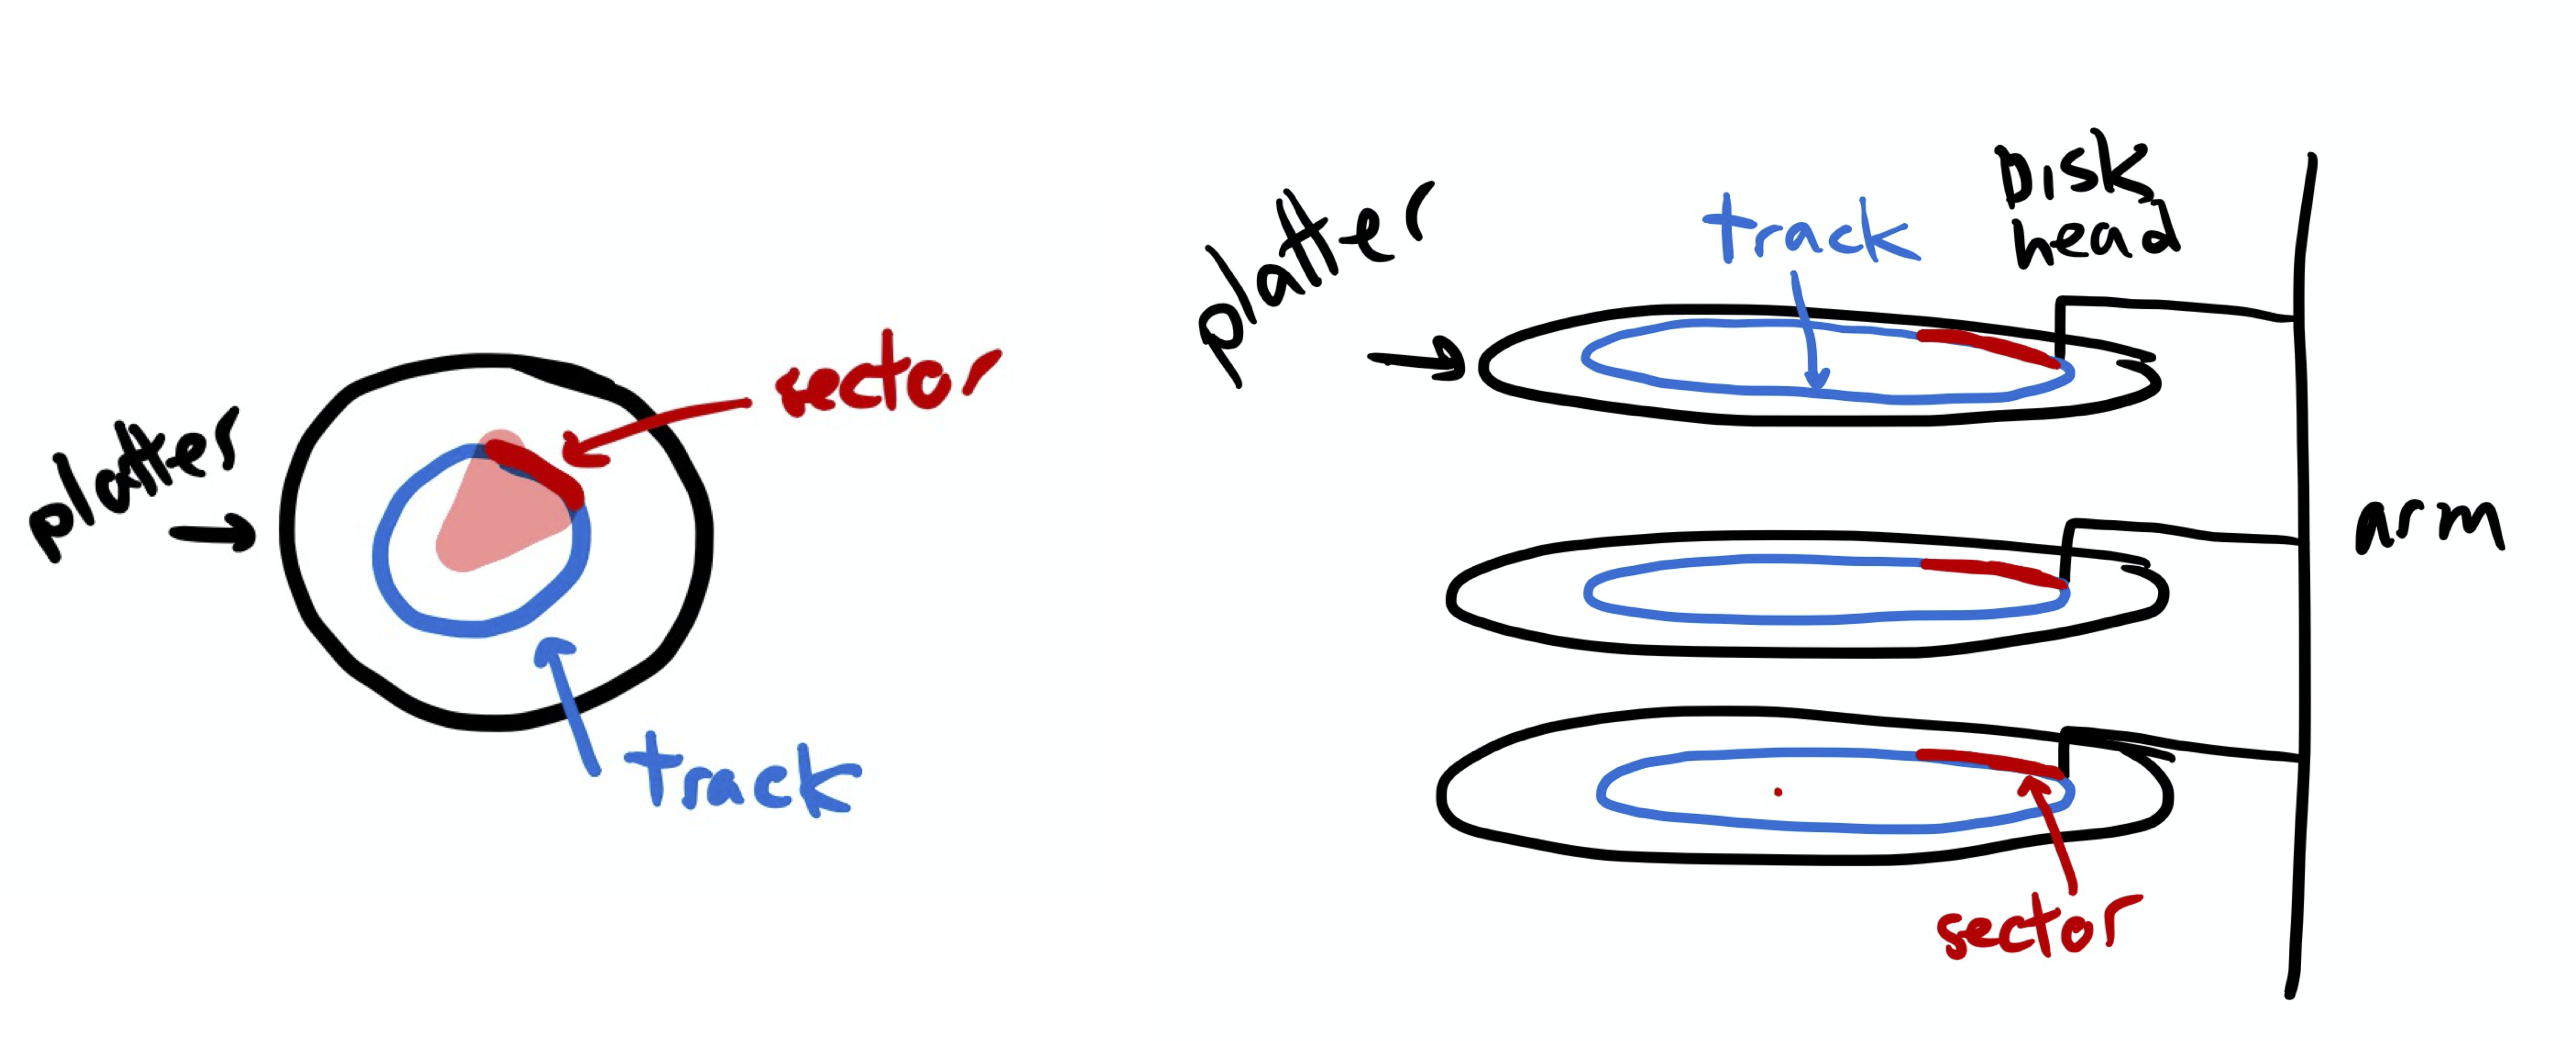 platter
sector
track
platter
track
Disk
head
arm
sector